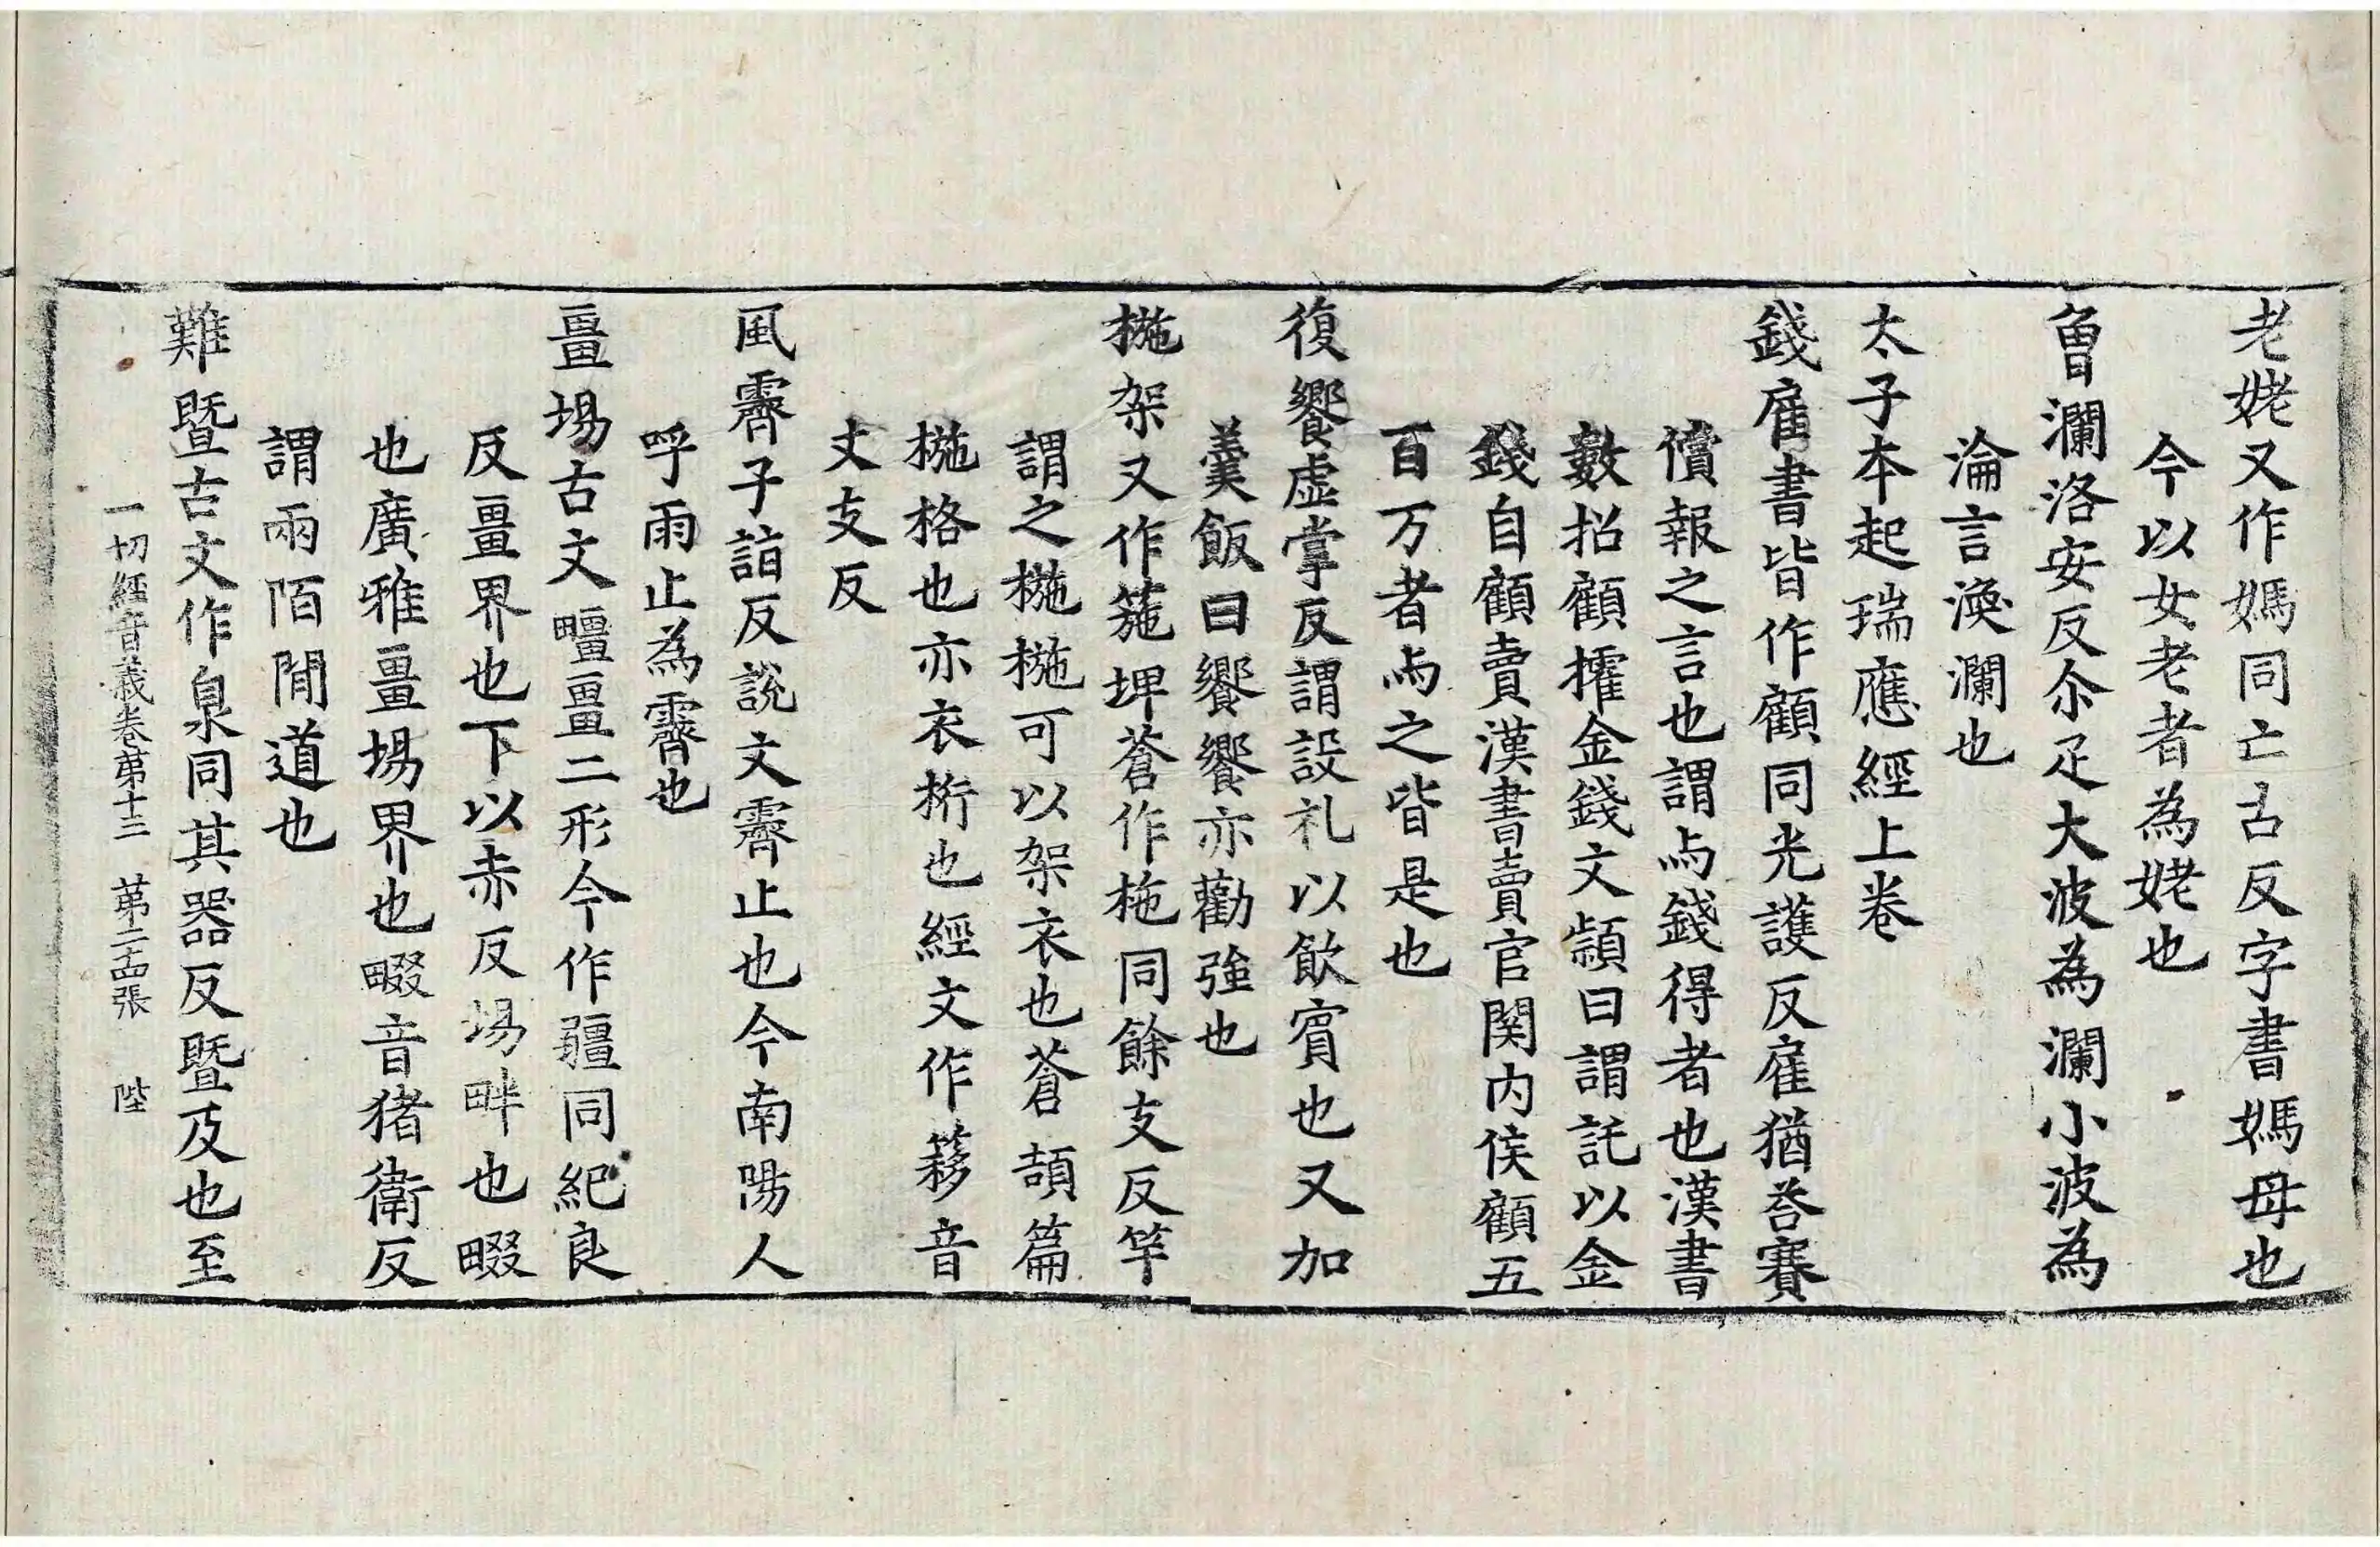 老姥又作媽同亡古反字書媽母也
今以女老者為姥也
魯瀾洛安反尒疋大波為瀾小波為
淪言渙瀾也
太子本起瑞應經上卷
錢雇書皆作顧同光護反雇猶荅賽
償報之言也謂与錢得者也漢書
數招顧搉金錢文穎曰謂託以金
錢自顧賣漢書賣官関内侯顧五
百万者与之皆是也
復饗虛掌反謂設礼以飲賓也又加
羹飯曰饗饗亦勸強也
椸架又作箷埤蒼作柂同餘支反竿
謂之椸椸可以架衣也蒼頡篇
椸格也亦衣桁也經文作簃音
丈支反
風霽子詣反說文霽止也今南陽人
呼雨止為霽也
畺埸古文畺二形今作疆同紀良
反畺界也下以赤反埸畔也畷
也廣雅畺埸界也畷音猪衛反
謂兩陌間道也
難暨古文作臮同其器反暨及也至
一切經音義卷第十三 第二十四張 陛